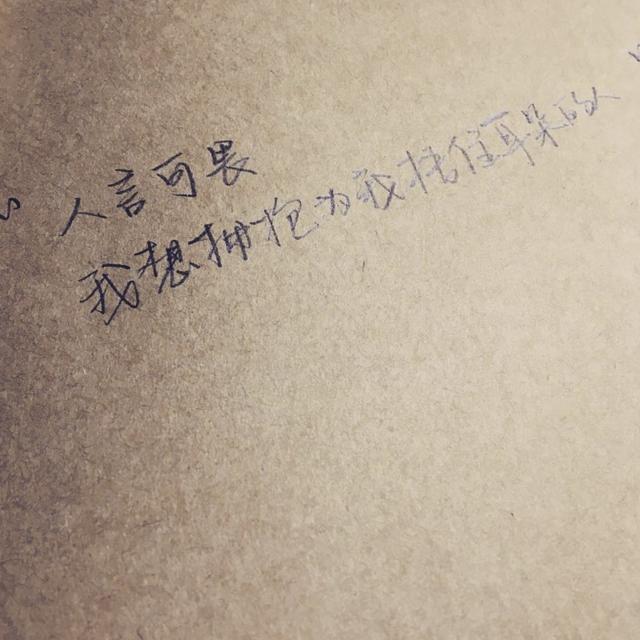 人言可畏
我想拥抱为我捂住耳朵的人